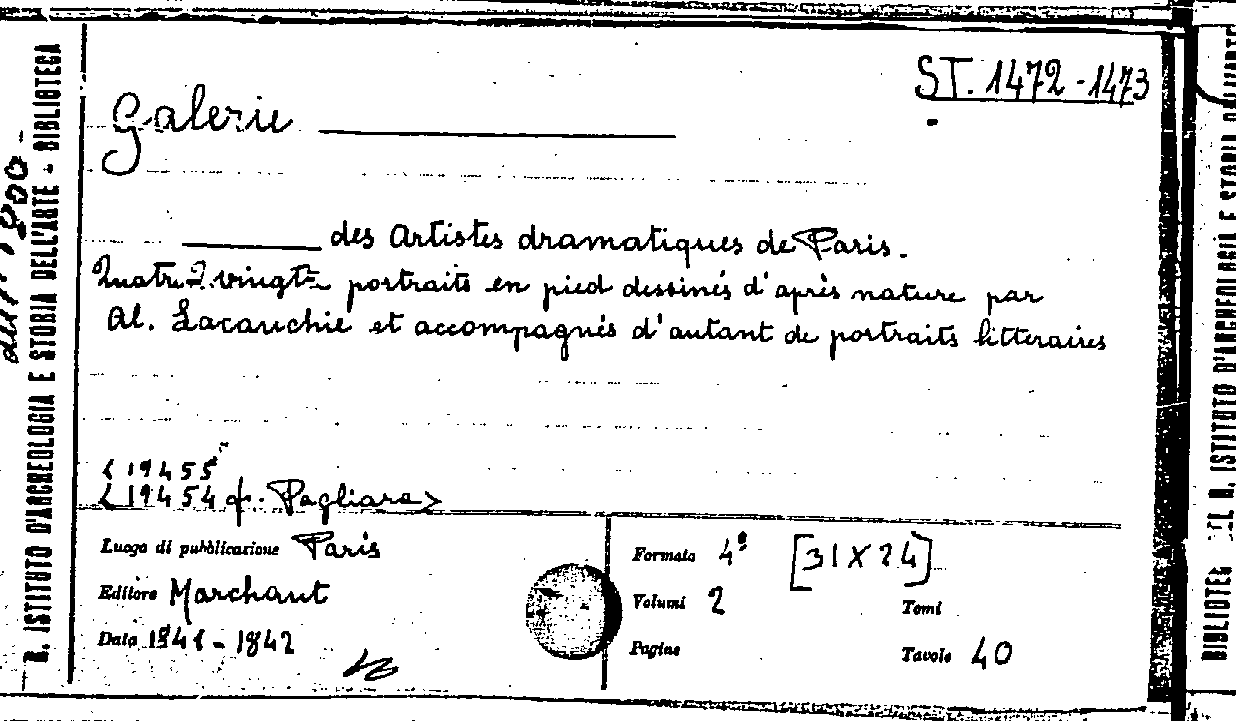 ST. 1472-1473
Galerie
des Artistes dramatiques de Paris.
Quatre vingt portraits en pied dessinés d'après nature par
Al. Lacauchie et accompagnés d'autant de portraits litteraires
< 19455
< 19454 f. Pagliara >
Luogo di pubblicazione Paris
Editore Marchant
Data 1841-1842
Formato 4° [31 X 24]
Volumi 2 Tomi
Pagine Tavole 40
R. ISTITUTO D'ARCHEOLOGIA E STORIA DELL'ARTE - BIBLIOTECA
ISTITUTO D'ARCHEOLOGIA E STORIA DELL'ARTE